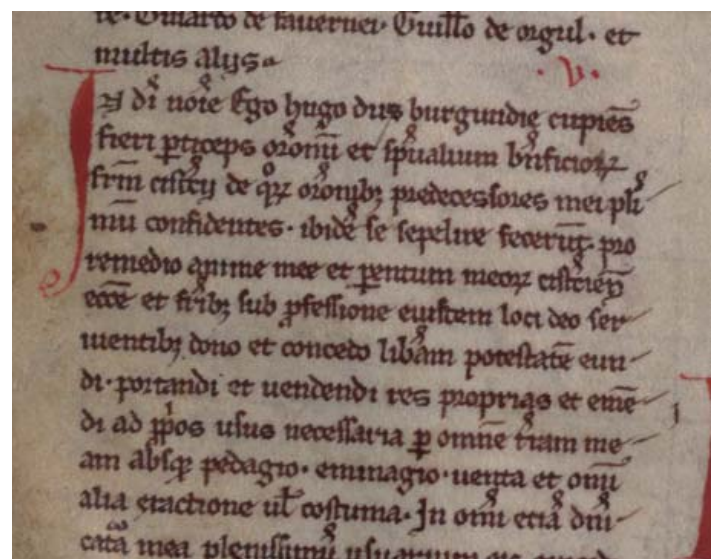 te. Guiarto de fauernei. Guill̄o de orgul. et
multis alijs.
.v.
In di noīe Ego hugo dux burgundie cupiēs
fieri ꝑticeps orōnū et sp̄ualium bn̄ficioꝝ
frm̄ cistcij de qͦꝝ orōnibꝫ predecessores mei pl̄i
mū confidentes. ibidē se sepelire fecerūt. pro
remedio anime mee et ꝑentum meoꝝ cistcien̄
ecc̄e et fr̄ibꝫ sub ꝓfessione eiusdem loci deo ser
uientibꝫ dono et concedo lib̄am potestatē eun
di. portandi et uendendi res proprias et emē
di ad ꝓpͥos usus necessaria ꝑ omnē t̄ram me
am absqꝫ pedagio. eminagio. uenta et omī
alia exactione ul̄ costuma. In omī etiā du
catu mea plenissimū usuarium